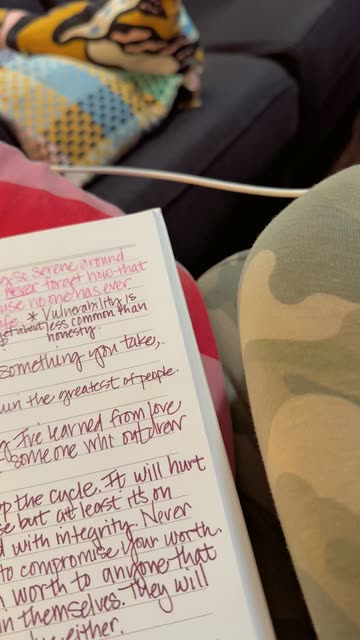 so serene around
Never forget how that
use no one has ever
* Vulnerability is
less common than
honesty.
something you take,
the greatest of people.
I've learned from love
someone who outdrew
the cycle. It will hurt
but at least it's on
with integrity. Never
to compromise your worth.
worth to anyone that
themselves. They will
either.